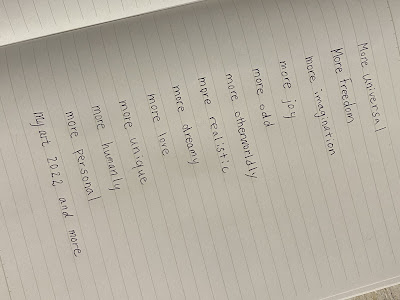 More universal
More freedom
more imagination
more joy
more odd
more otherworldly
more realistic
more dreamy
more love
more unique
more humanly
more personal
My art 2022 and more